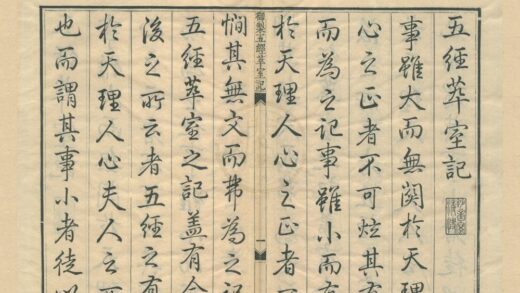 五經萃室記
事雖大而無関於天理
心之正者不可炫其有
而為之記事雖小而有
於天理人心之正者
御製五經萃室記
一
憫其無文而弗為之記
五經萃室之記盖有
後之所云者五經之有
於天理人心夫人之所
也而謂其事小者徒